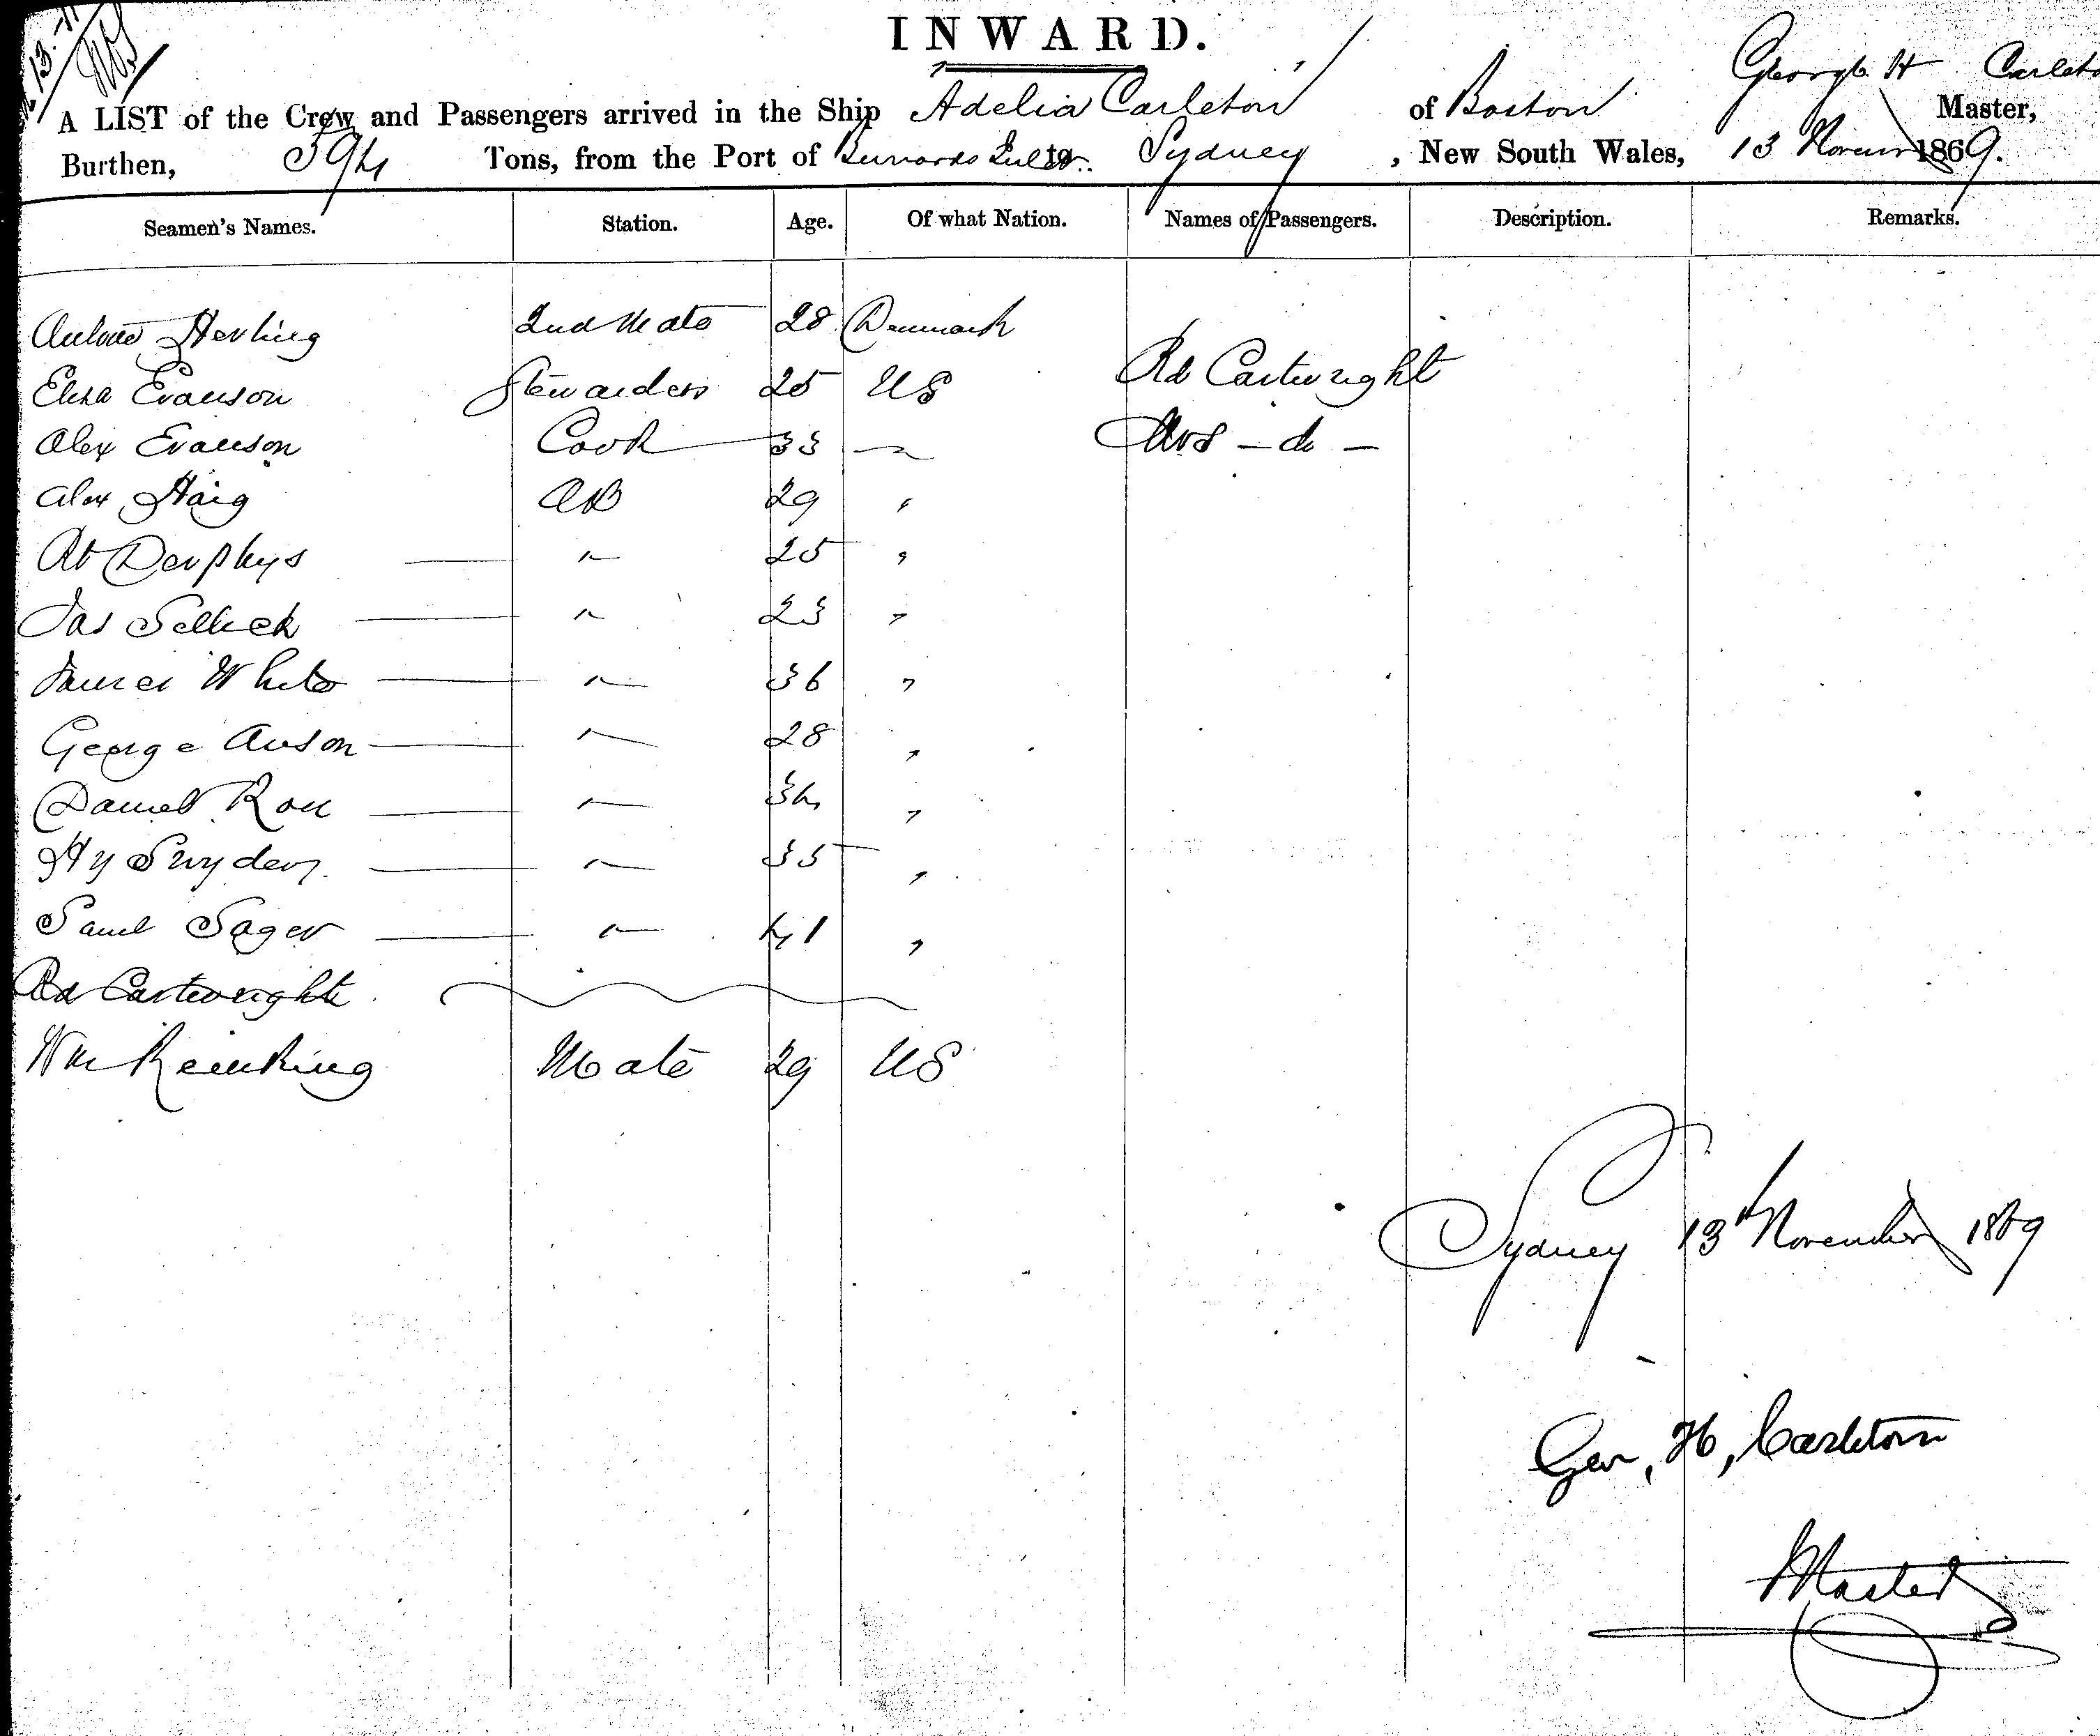 INWARD.
George H Carleto
A LIST of the Crew and Passengers arrived in the Ship Adelia Carleton of Boston Master,
Burthen, 394 Tons, from the Port of to Sydney, New South Wales, 13 1869.
Seamen's Names. Station. Age. Of what Nation. Names of Passengers. Description. Remarks.
2nd Mate 28 Denmark
Eliza Evanson Stewardess 25 US Rd Cartwright
Alex Evanson Cook 33 " Mrs - do -
Alex Haig AB 29 "
Rt " 25 "
Jas Selleck " 23 "
James White " 36 "
George Anson " 28 "
Daniel " 34 "
Hy Snyder " 35 "
Saml Sager " 41 "
Rd Cartwright
Wm Mate 29 US
Sydney 13th November 1869
Geo, H, Carleton
Master